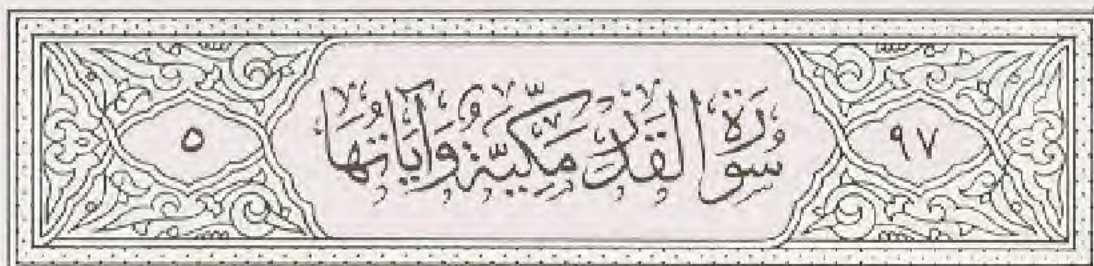 ٩٧ سُورَةُ الْقَدْرِ مَكِّيَّةٌ وَآيَاتُهَا ٥